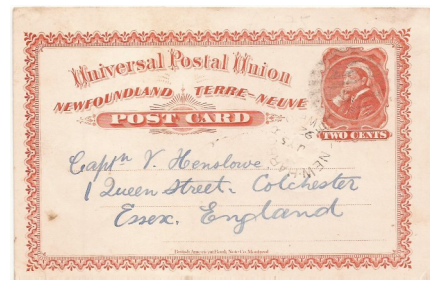 Universal Postal Union
NEWFOUNDLAND TERRE-NEUVE
POST CARD
TWO CENTS
Captn V. Henslowe
1 Queen Street. Colchester
Essex. England